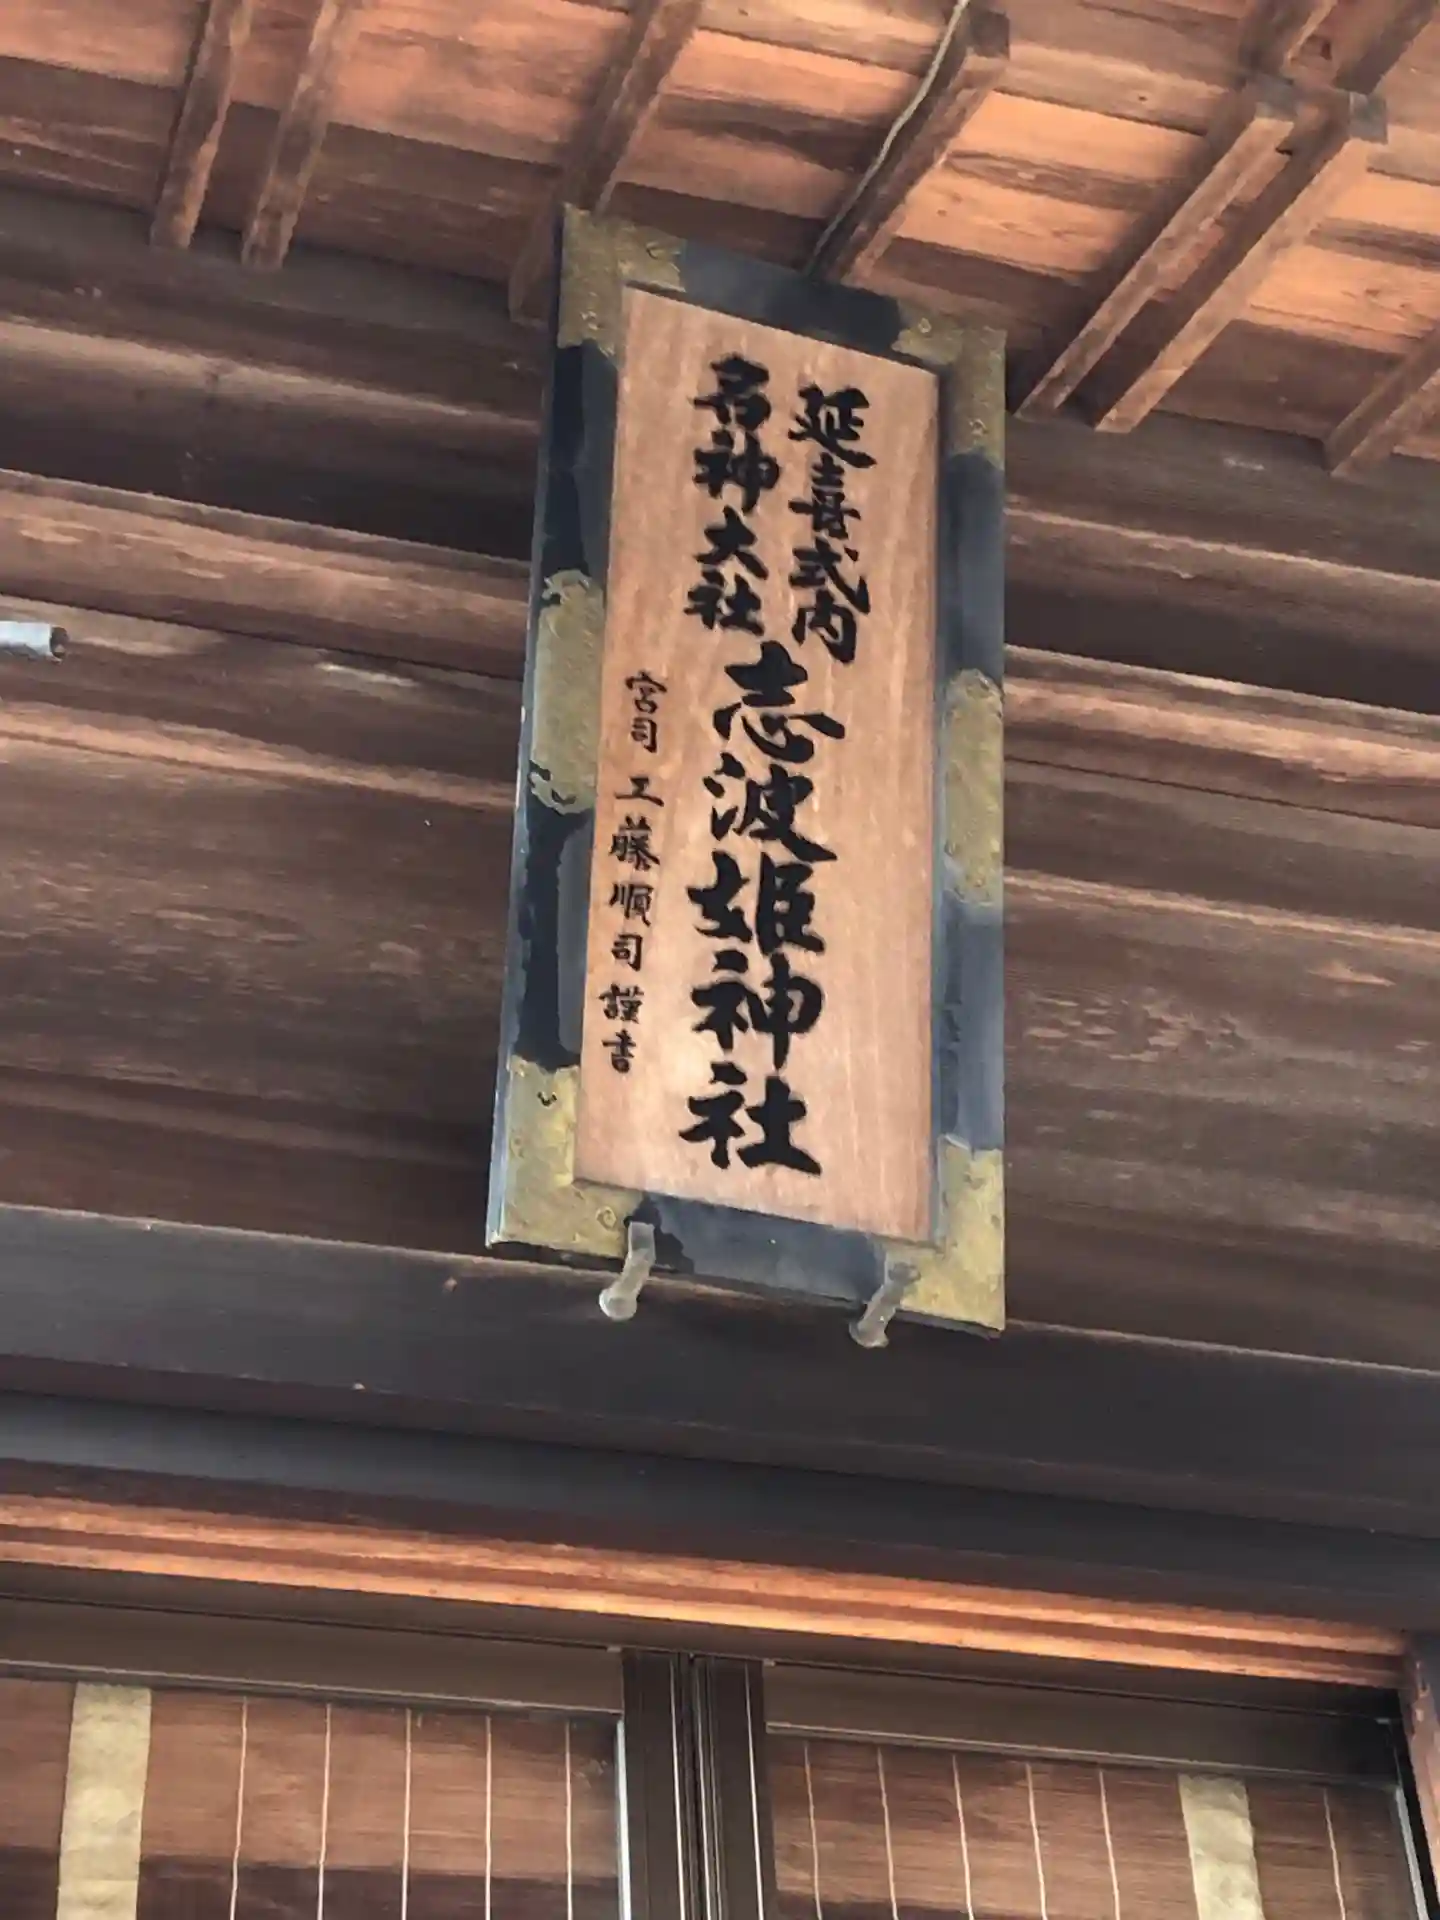 延喜式内
名神大社
志波姫神社
宮司 工藤順司謹書